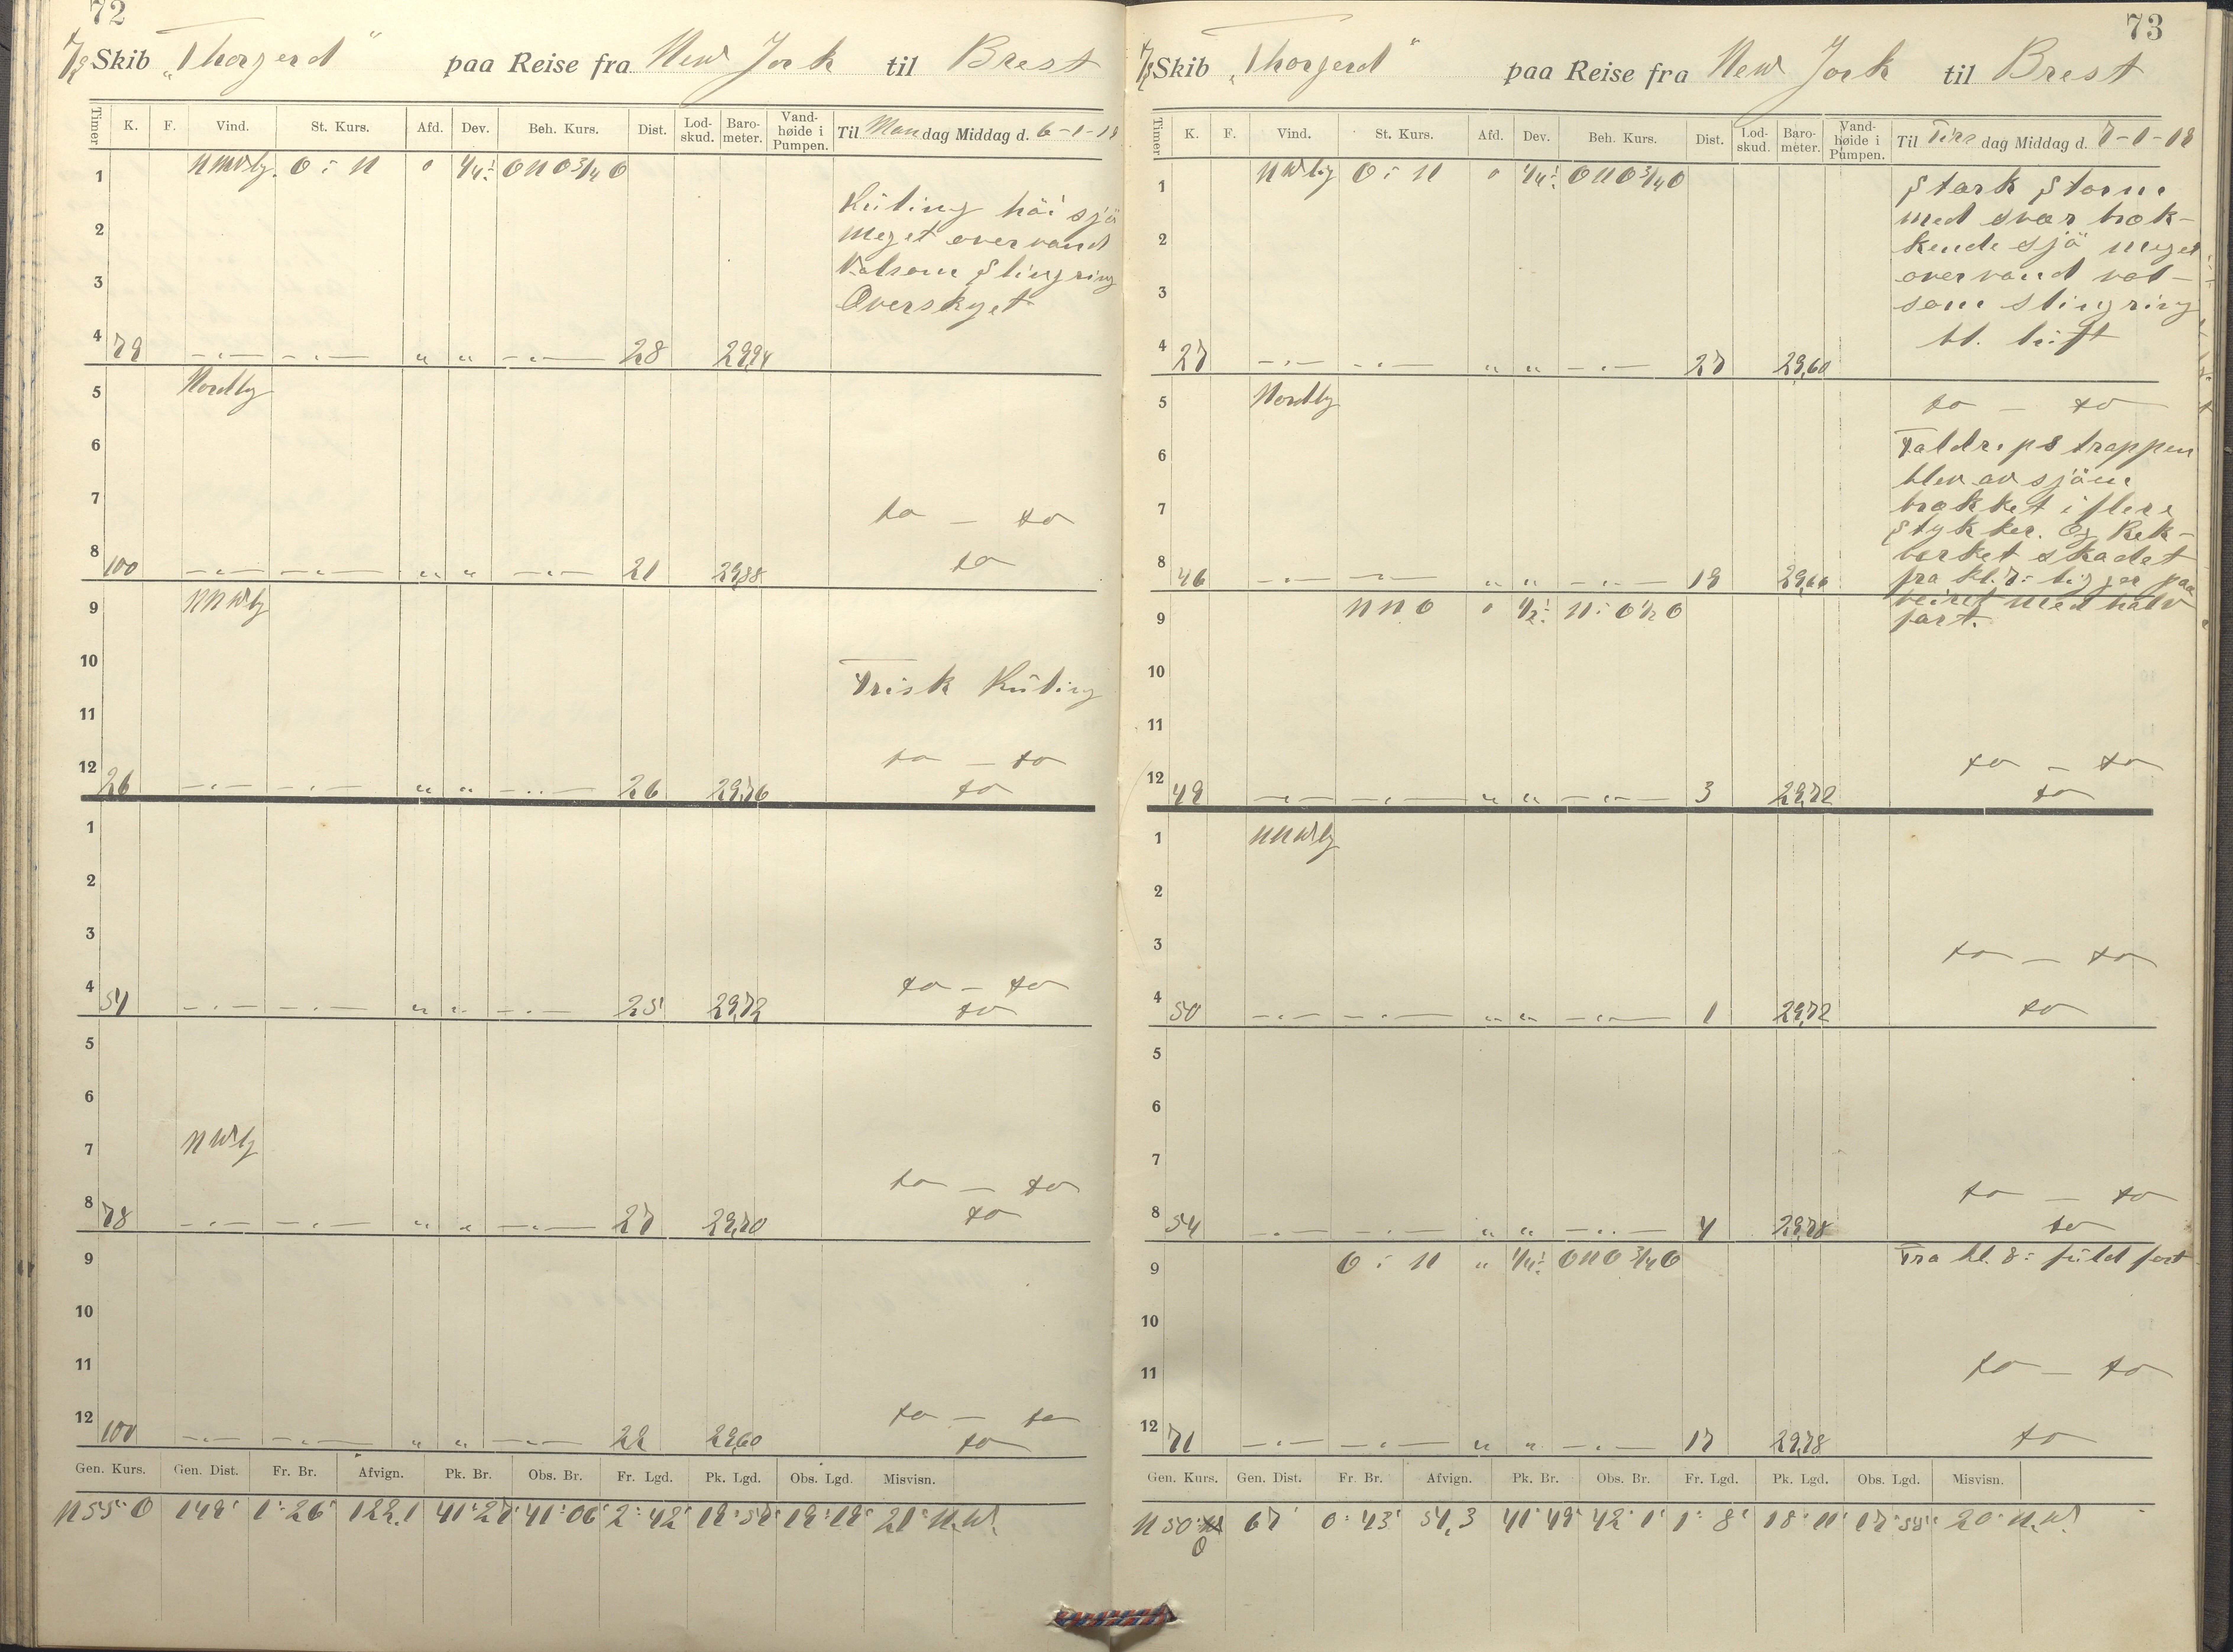 72
D/S Skib „Thorgerd" paa Reise fra New York til Brest
Timer K. F. Vind. St. Kurs. Afd. Dev. Beh. Kurs. Dist. Lod-skud. Baro-meter. Vand-høide i Pumpen. Til Mandag Middag d. 6-1-19
1 NNWlig. O : N 0 1/4: ONO 3/4 O
Kuling höi sjö
2 meget overvand
3 Volsom Slingring
Overskyet
4 79 —"— —"— " " —"— 28 29,94
5 Nordlig
6
7 do — do
8 100 —"— —"— " " —"— 21 29,88 do
9 NNWlig
10 Frisk Kuling
11
12 26 —"— —"— " " —"— 26 29,76 do — do
do
1
2
3
4 51 —"— —"— " " —"— 25 29,72 do — do
do
5
6
7 NWlig
8 78 —"— —"— " " —"— 27 29,70 do — do
do
9
10
11
12 100 —"— —"— " " —"— 22 29,60 do — do
do
Gen. Kurs. Gen. Dist. Fr. Br. Afvign. Pk. Br. Obs. Br. Fr. Lgd. Pk. Lgd. Obs. Lgd. Misvisn.
N 55° O 149' 1° 26' 122,1 41° 27' 41° 06' 2° 42' 19° 59' 19° 19' 21° N.W.
73
D/S Skib „Thorgerd" paa Reise fra New York til Brest
Timer K. F. Vind. St. Kurs. Afd. Dev. Beh. Kurs. Dist. Lod-skud. Baro-meter. Vand-høide i Pumpen. Til Tirsdag Middag d. 7-1-19
1 NWlig O : N 0 1/4: ONO 3/4 O
Stark Storm
med svær bræk-
2 kende sjö meget
overvand vol-
3 som slingring
bl. luft
4 27 —"— —"— " " —"— 27 29,60
5 Nordlig do — do
6 Faldrepstrappen
blev av sjöen
7 brækket i flere
Stykker. Og Rek-
8 værket skadet
46 —"— —"— " " —"— 19 29,66 fra kl. 7: ligger paa
9 NNO 0 1/2: N : O 1/2 O veiret med halv
fart.
10
11
12 49 —"— —"— " " —"— 3 29,72 do — do
do
1 NNWlig
2
3 do — do
4 50 —"— —"— " " —"— 1 29,72 do
5
6
7
8 54 —"— —"— " " —"— 4 29,78 do — do
do
9 O : N " 1/4: ONO 3/4 O Fra kl. 8: fuld fart
10
11 do — do
12 71 —"— —"— " " —"— 17 29,78 do
Gen. Kurs. Gen. Dist. Fr. Br. Afvign. Pk. Br. Obs. Br. Fr. Lgd. Pk. Lgd. Obs. Lgd. Misvisn.
N 50° O 67' 0° 43' 51,3 41° 49' 42° 1' 1° 8' 18° 11' 20° N.W.